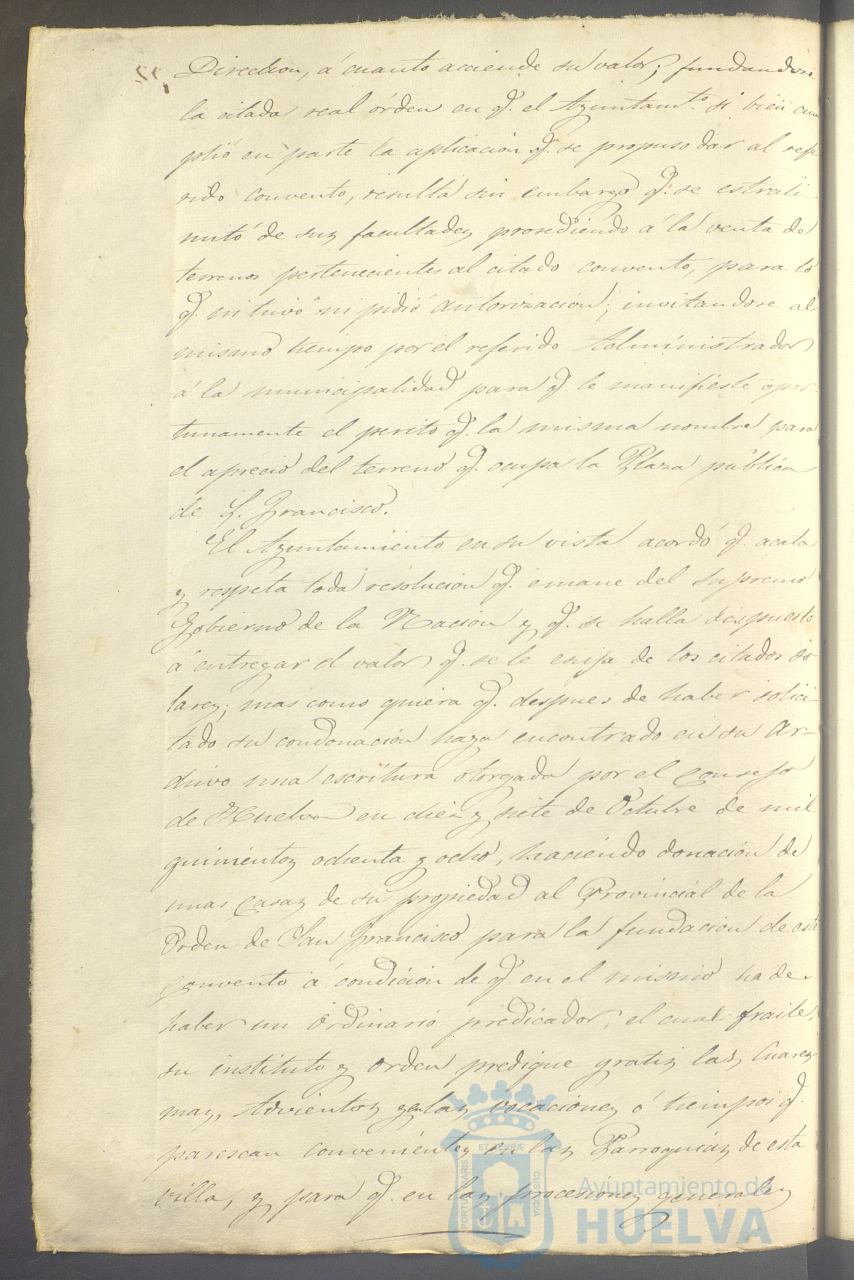 Direccion, á cuanto acciende su valor; fundandose
la citada real órden en q.e el Ayuntam.to si bien cum
plió en parte la aplicación q.e se propuso dar al refe
rido convento, resulta sin embargo q.e se estrali
mitó de sus facultades prosediendo á la venta de
terrenos pertenecientes al citado convento, para lo
q.e ni tuvo ni pidió autorización; invitandose al
mismo tiempo por el referido Administrador
á la municipalidad para q.e le manifieste opor
tunamente el perito q.e la misma nombre para
el aprecio del terreno q.e ocupa la Plaza pública
de S. Francisco.
El Ayuntamiento en su vista acordó q.e acata
y respeta toda resolucion q.e emane del Supremo
Gobierno de la Nacion y q.e se halla dispuesto
á entregar el valor q.e se le exija de los citados so
lares; mas como quiera q.e despues de haber solici
tado su condonación haya encontrado en su Ar-
chivo una escritura otorgada por el Consejo
de Huelva en diez y siete de Octubre de mil
quinientos ochenta y ocho, haciendo donación de
unas casas de su propiedad al Provincial de la
Orden de San Francisco para la fundacion de este
convento á condición de q.e en el mismo ha de
haber un ordinario predicador, el cual fraile,
su instituto y orden predique gratis las Cuares
mas, Advientos y las vocaciones ó tiempos q.e
parescan convenientes en las Parroquias de esta
villa, y para q.e en las procesiones generales
PORTUS MARIS
ET TERRÆ
CUSTODIA
Ayuntamiento de
HUELVA